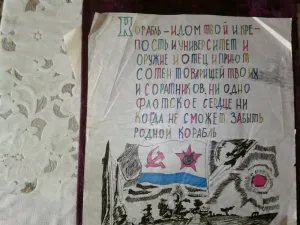 КОРАБЛЬ-И ДОМ ТВОЙ И КРЕ-
ПОСТЬ И УНИВЕРСИТЕТ И
ОРУЖИЕ И ОТЕЦ И ПРИЮТ
СОТЕН ТОВАРИЩЕЙ ТВОИХ
И СОРАТНИКОВ, НИ ОДНО
ФЛОТСКОЕ СЕРДЦЕ НИ
КОГДА НЕ СМОЖЕТ ЗАБЫТЬ
РОДНОЙ КОРАБЛЬ